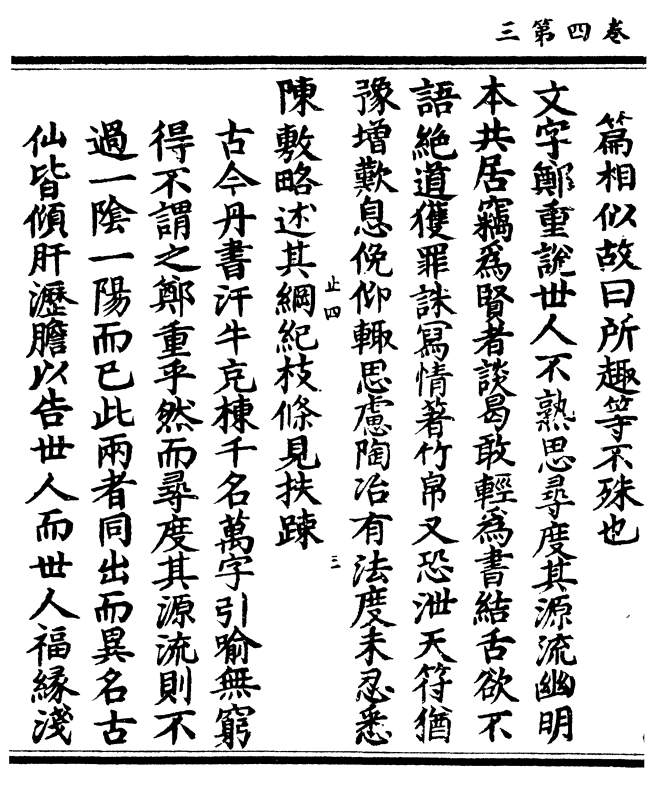 三第四卷
篇相似故曰所趣等不殊也
文字鄭重說世人不熟思尋度其源流幽明
本共居竊爲賢者談曷敢輕爲書結舌欲不
語絶道獲罪誅寫情著竹帛又恐泄天符猶
豫增歎息俛仰輙思慮陶冶有法度未忍悉
陳敷略述其綱紀枝條見扶踈
止四
三
古今丹書汗牛充棟千名萬字引喻無窮
得不謂之鄭重乎然而尋度其源流則不
過一隂一陽而已此兩者同出而異名古
仙皆傾肝瀝膽以告世人而世人福縁淺